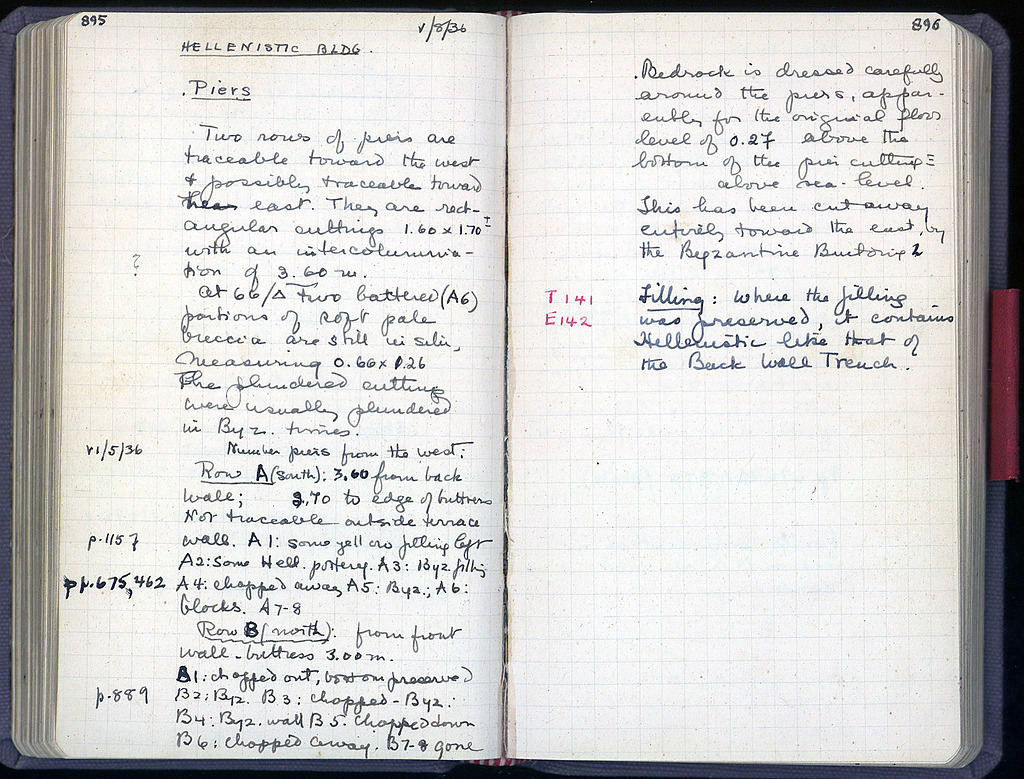 895
V/8/36
HELLENISTIC BLDG.
.Piers
Two rows of piers are
traceable toward the west
& possibly traceable toward
east. They are rect-
angular cuttings 1.60 x 1.70 ±
with an intercolumnia-
? tion of 3.60 m.
At 66/Δ two battered (A6)
portions of soft pale
breccia are still in situ,
measuring 0.66 x 0.26
The plundered cutting
were usually plundered
in Byz. times.
VI/5/36 Number piers from the west:
Row A (south): 3.60 from back
wall; 2.70 to edge of buttress
Not traceable outside terrace
p.1157 wall. A1: some yellow filling left
A2: Some Hell. pottery. A3: Byz. filling
pp.675, 462 A4: chopped away A5: Byz.; A6:
blocks. A7-8
Row B (north): from front
wall-buttress 3.00 m.
B1: chopped out, bottom preserved
p.889 B2: Byz. B3: chopped - Byz.
B4: Byz. wall B5. Chopped down
B6: chopped away. B7-8 gone
896
.Bedrock is dressed carefully
around the piers, appar-
ently for the original floor
level of 0.27 above the
bottom of the pier cutting =
above sea-level.
This has been cut away
entirely toward the east, by
the Byzantine Building 2
T 141 Filling: Where the filling
E142 was preserved, it contains
Hellenistic like that of
the Back Wall Trench.